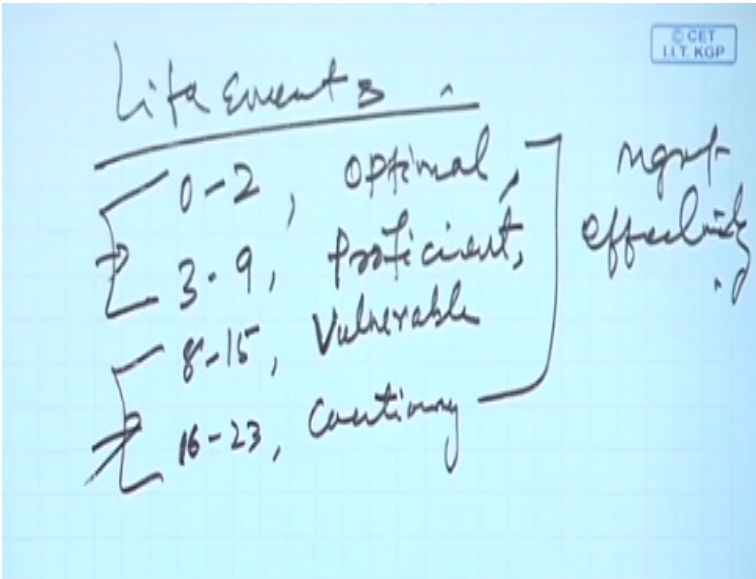 © CET
I.I.T. KGP
Life Events
0-2, Optimal,
3-9, Proficient,
8-15, Vulnerable
16-23, Cautionary
mgmt